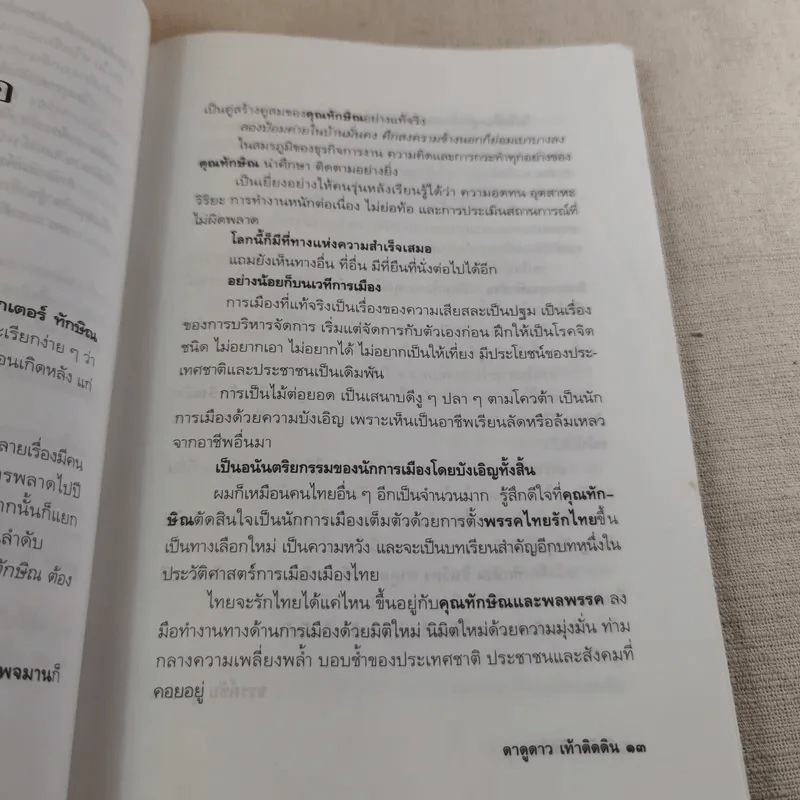 อ
กเตอร์ ทักษิณ
ะเรียกง่าย ๆ ว่า
อนเกิดหลัง แก่
ลายเรื่องมีคน
รพลาดไปปี
ากนั้นก็แยก
นลำดับ
ทักษิณ ต้อง
พจมานก็
เป็นคู่สร้างคู่สมของคุณทักษิณอย่างแท้จริง
สองป้อมค่ายในบ้านมั่นคง ศึกสงครามข้างนอกก็ย่อมเบาบางลง
ในสมรภูมิของธุรกิจการงาน ความคิดและการกระทำทุกอย่างของ
คุณทักษิณ น่าศึกษา ติดตามอย่างยิ่ง
เป็นเยี่ยงอย่างให้คนรุ่นหลังเรียนรู้ได้ว่า ความอดทน อุตสาหะ
วิริยะ การทำงานหนักต่อเนื่อง ไม่ย่อท้อ และการประเมินสถานการณ์ที่
ไม่ผิดพลาด
โลกนี้ก็มีที่ทางแห่งความสำเร็จเสมอ
แถมยังเห็นทางอื่น ที่อื่น มีที่ยืนที่นั่งต่อไปได้อีก
อย่างน้อยก็บนเวทีการเมือง
การเมืองที่แท้จริงเป็นเรื่องของความเสียสละเป็นปฐม เป็นเรื่อง
ของการบริหารจัดการ เริ่มแต่จัดการกับตัวเองก่อน ฝึกให้เป็นโรคจิต
ชนิด ไม่อยากเอา ไม่อยากได้ ไม่อยากเป็นให้เที่ยง มีประโยชน์ของประ-
เทศชาติและประชาชนเป็นเดิมพัน
การเป็นไม้ต่อยอด เป็นเสนาบดีงู ๆ ปลา ๆ ตามโควต้า เป็นนัก
การเมืองด้วยความบังเอิญ เพราะเห็นเป็นอาชีพเรียนลัดหรือล้มเหลว
จากอาชีพอื่นมา
เป็นอนันตริยกรรมของนักการเมืองโดยบังเอิญทั้งสิ้น
ผมก็เหมือนคนไทยอื่น ๆ อีกเป็นจำนวนมาก รู้สึกดีใจที่คุณทัก-
ษิณตัดสินใจเป็นนักการเมืองเต็มตัวด้วยการตั้งพรรคไทยรักไทยขึ้น
เป็นทางเลือกใหม่ เป็นความหวัง และจะเป็นบทเรียนสำคัญอีกบทหนึ่งใน
ประวัติศาสตร์การเมืองเมืองไทย
ไทยจะรักไทยได้แค่ไหน ขึ้นอยู่กับคุณทักษิณและพลพรรค ลง
มือทำงานทางด้านการเมืองด้วยมิติใหม่ นิมิตใหม่ด้วยความมุ่งมั่น ท่าม
กลางความเพลี่ยงพล้ำ บอบช้ำของประเทศชาติ ประชาชนและสังคมที่
คอยอยู่
ตาดูดาว เท้าติดดิน ๑๓